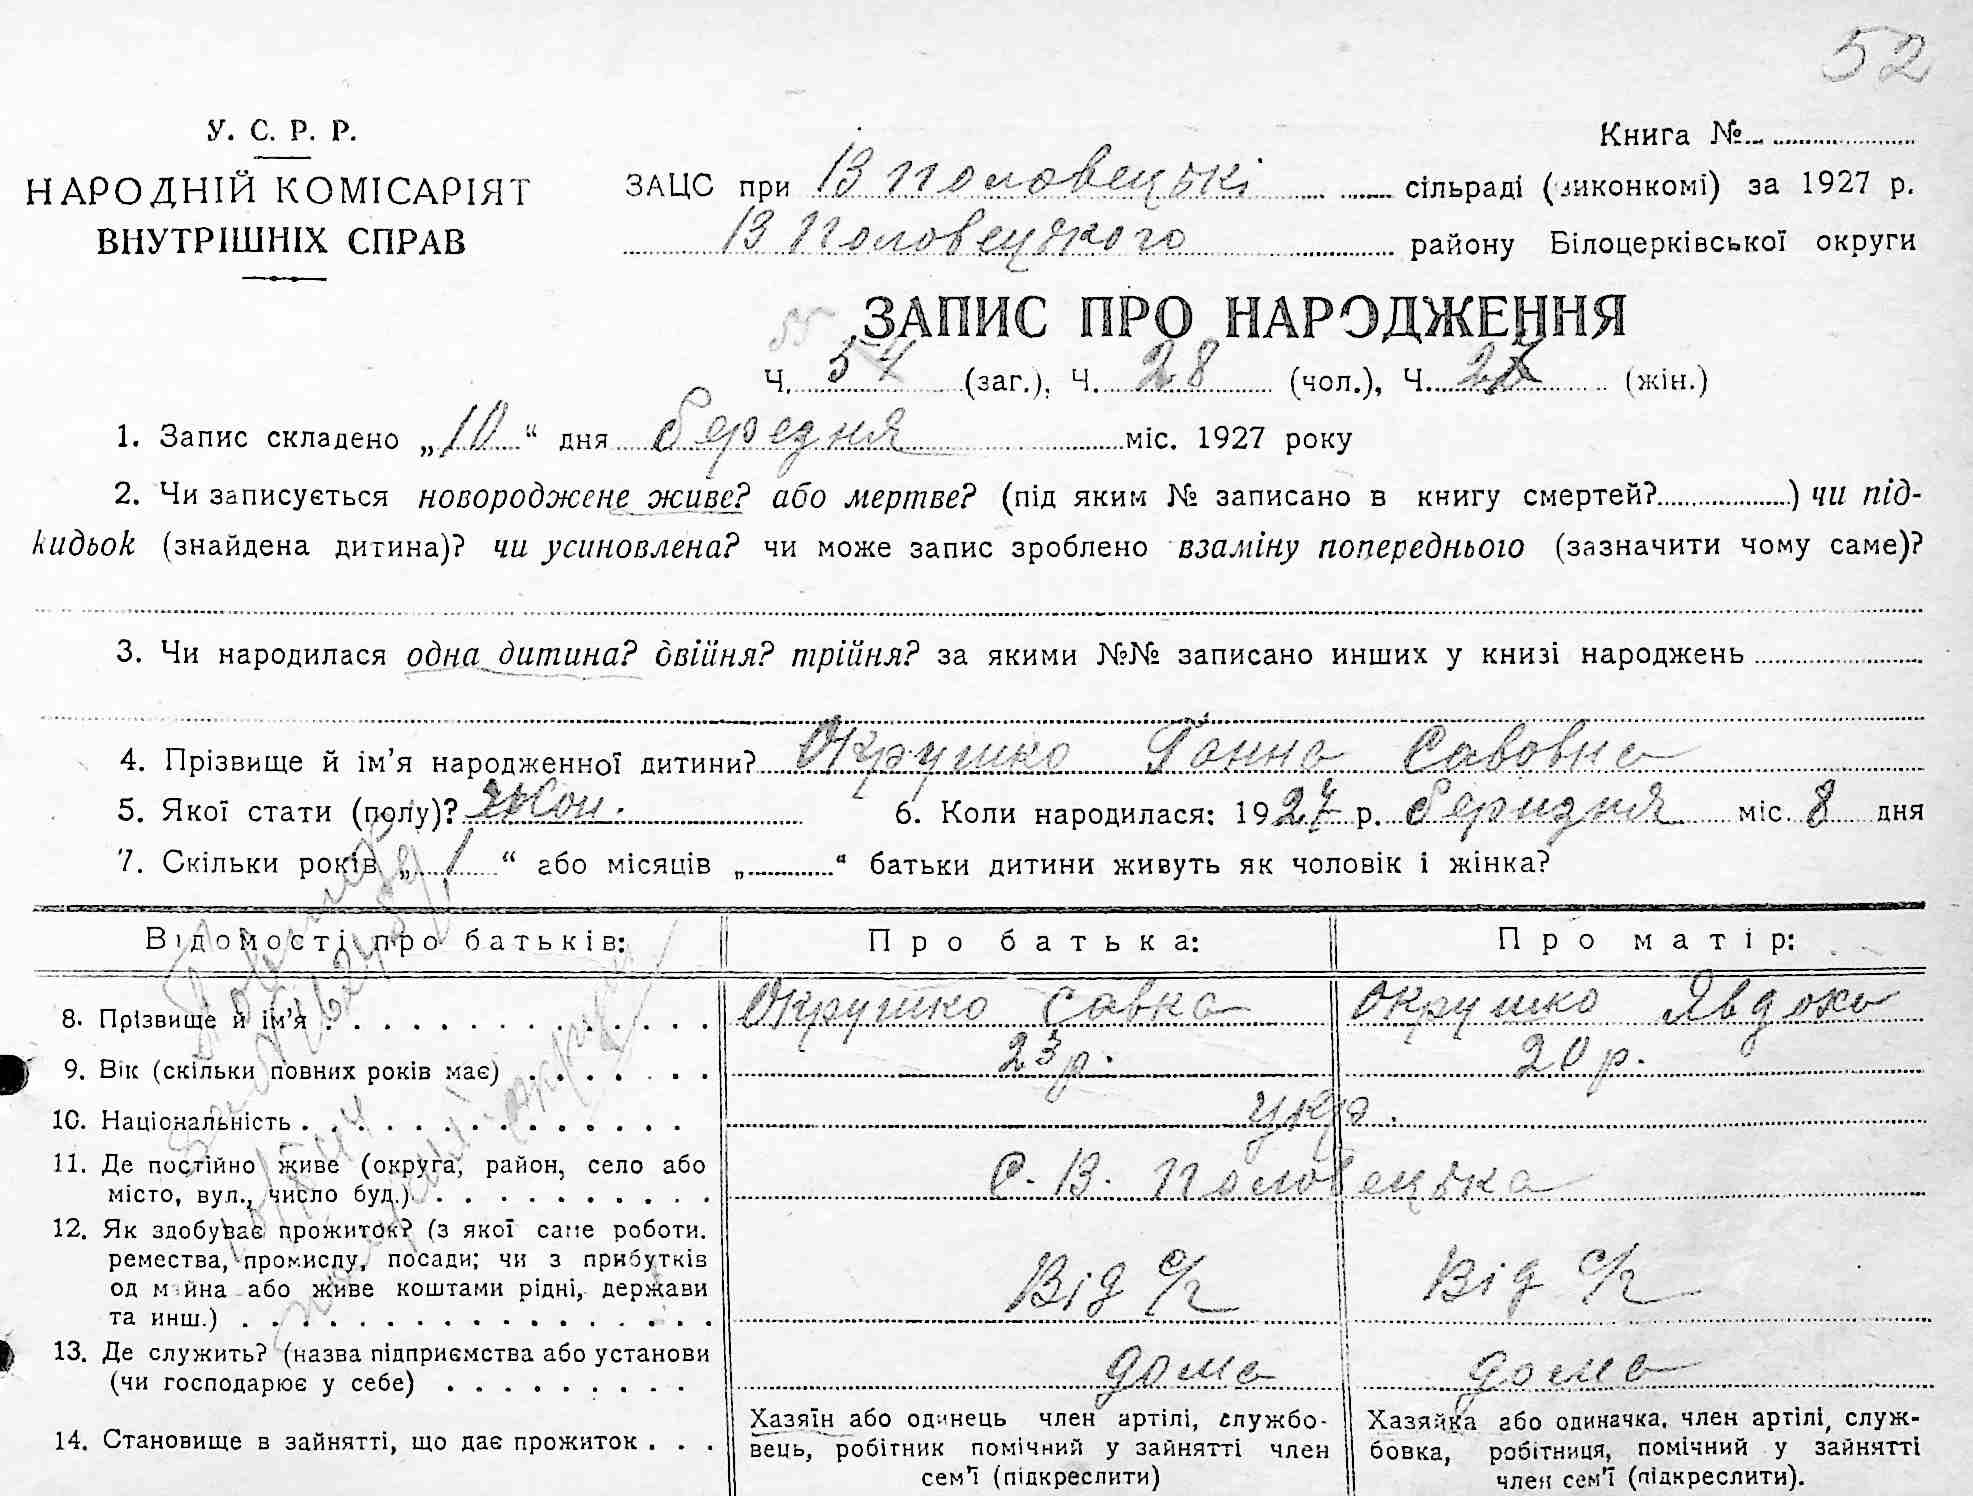 52
У. С. Р. Р.
НАРОДНІЙ КОМІСАРІЯТ
ВНУТРІШНІХ СПРАВ
Книга №
ЗАЦС при В Половецькі сільраді (виконкомі) за 1927 р.
В Половецького району Білоцерківської округи
ЗАПИС ПРО НАРОДЖЕННЯ
55
Ч. 54 (заг.), Ч. 28 (чол.), Ч. 27 (жін.)
1. Запис складено „10“ дня березня міс. 1927 року
2. Чи записується новороджене живе? або мертве? (під яким № записано в книгу смертей? ) чи під-
кидьок (знайдена дитина)? чи усиновлена? чи може запис зроблено взаміну попереднього (зазначити чому саме)?
3. Чи народилася одна дитина? двійня? трійня? за якими №№ записано инших у книзі народжень
4. Прізвище й ім’я народженної дитини? Окрушко Ганна Савовна
5. Якої стати (полу)? жон. 6. Коли народилася: 1927 р. березня міс. 8 дня
7. Скільки років „1“ або місяців „ “ батьки дитини живуть як чоловік і жінка?
Відомості про батьків: Про батька: Про матір:
8. Прізвище й ім’я Окрушко Савка Окрушко Явдоха
9. Вік (скільки повних років має) 23 р. 20 р.
10. Національність укр.
11. Де постійно живе (округа, район, село або
місто, вул., число буд.) С. В. Половецька
12. Як здобуває прожиток? (з якої саме роботи,
ремества, промислу, посади; чи з прибутків
од майна або живе коштами рідні, держави
та инш.) Від с/г Від с/г
13. Де служить? (назва підприємства або установи
(чи господарює у себе) дома дома
14. Становище в зайнятті, що дає прожиток
Хазяїн або одинець член артілі, службо-
вець, робітник помічний у зайнятті член
сем’ї (підкреслити)
Хазяйка або одиначка, член артілі, служ-
бовка, робітниця, помічний у зайнятті
член сем’ї (підкреслити).